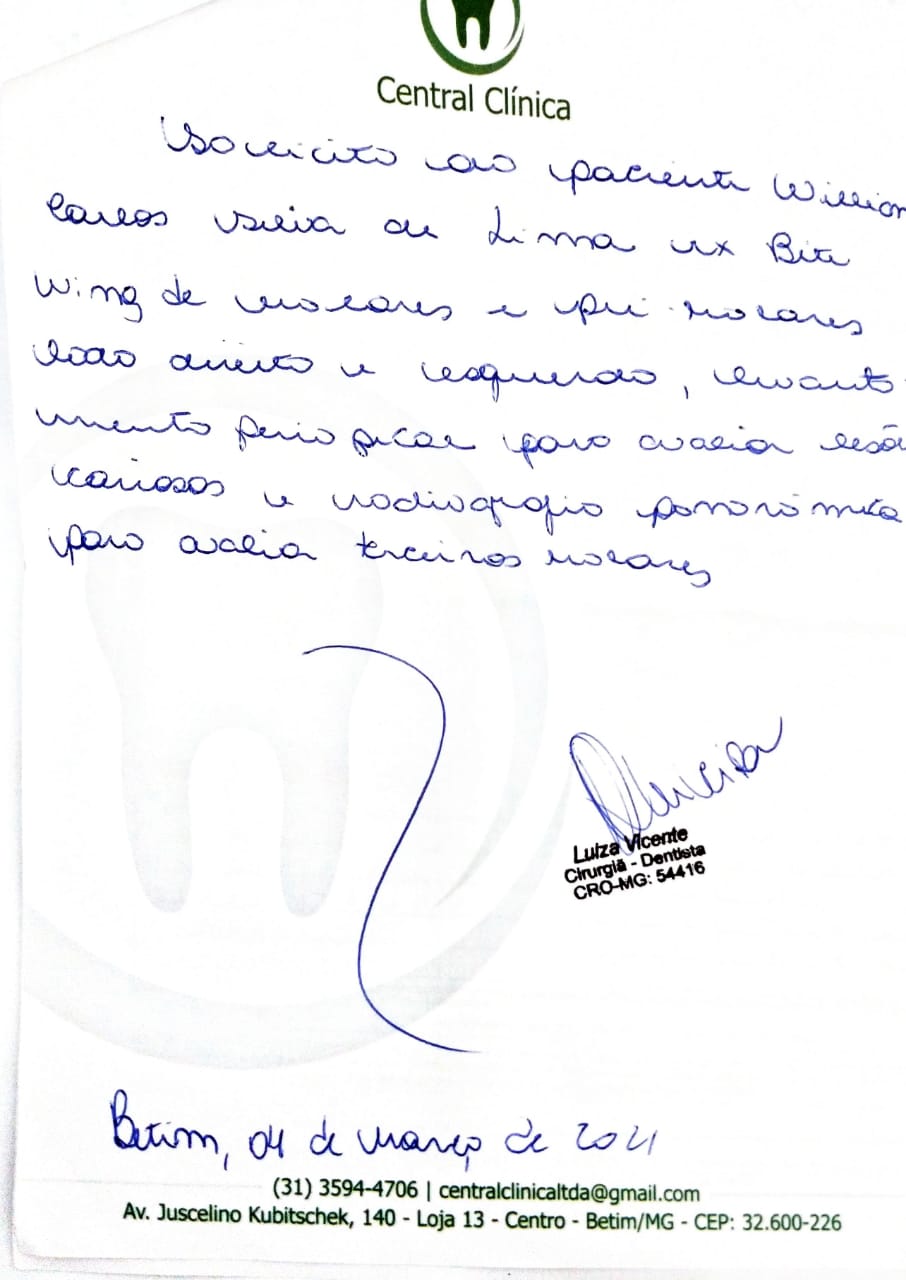 Central Clínica
Solicito ao paciente Willian
Carlos Vieira de Lima rx Bite
Wing de molares e pré-molares
lado direito e esquerdo, levanta-
mento periapical para avaliar
cariosas e radiografia panorâmica
para avaliar terceiros molares
Luiza Vicente
Cirurgiã - Dentista
CRO-MG: 54416
Betim, 04 de março de 2021
(31) 3594-4706 | centralclinicaltda@gmail.com
Av. Juscelino Kubitschek, 140 - Loja 13 - Centro - Betim/MG - CEP: 32.600-226